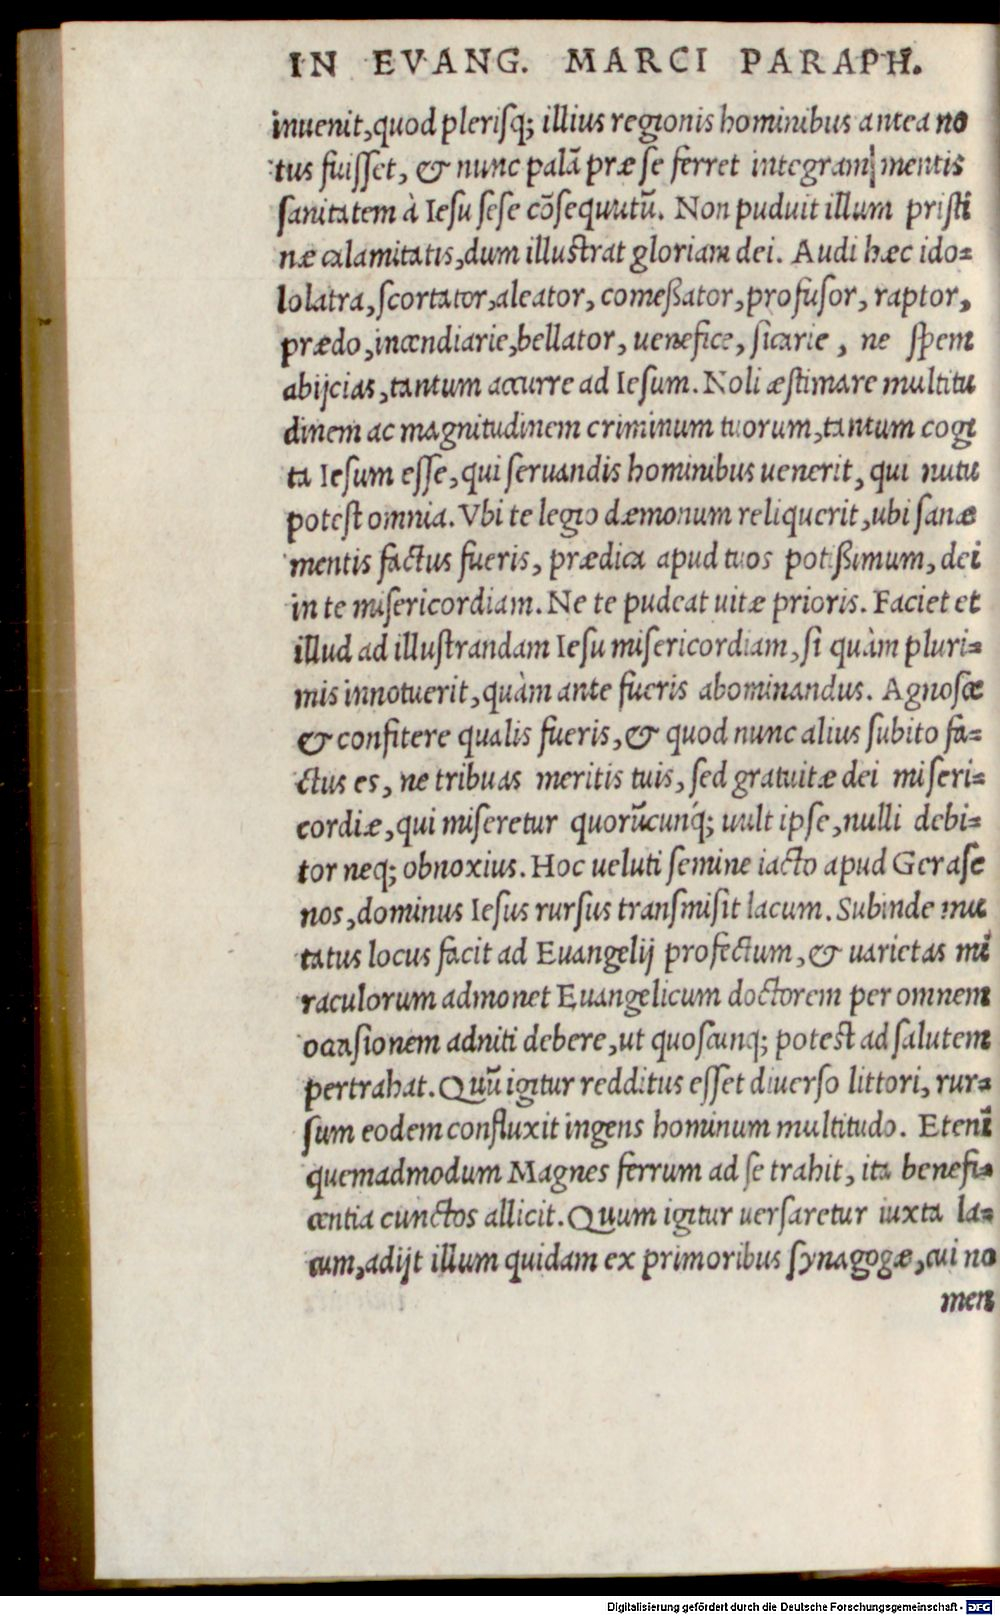 IN EVANG. MARCI PARAPH.
inuenit,quod plerisq; illius regionis hominibus antea no
tus fuisset, & nunc palã præ se ferret integram mentis
sanitatem à Iesu sese cõsequutũ. Non puduit illum pristi
næ calamitatis,dum illustrat gloriam dei. Audi hæc ido-
lolatra,scortator,aleator, comeßator,profusor, raptor,
prædo,incendiarie,bellator, uenefice, sicarie , ne spem
abijcias,tantum accurre ad Iesum. Noli æstimare multitu
dinem ac magnitudinem criminum tuorum,tantum cogi
ta Iesum esse,qui seruandis hominibus uenerit, qui nutu
potest omnia. Vbi te legio dæmonum reliquerit,ubi sanæ
mentis factus fueris, prædica apud tuos potißimum, dei
in te misericordiam. Ne te pudeat uitæ prioris. Faciet et
illud ad illustrandam Iesu misericordiam,si quàm pluri-
mis innotuerit,quàm ante fueris abominandus. Agnosce
& confitere qualis fueris,& quod nunc alius subito fa-
ctus es, ne tribuas meritis tuis, sed gratuitæ dei miseri-
cordiæ,qui miseretur quorũcunq́; uult ipse,nulli debi-
tor neq; obnoxius. Hoc ueluti semine iacto apud Gerase
nos,dominus Iesus rursus transmisit lacum. Subinde mu
tatus locus facit ad Euangelij profectum,& uarietas mi
raculorum admonet Euangelicum doctorem per omnem
occasionem adniti debere,ut quoscunq; potest ad salutem
pertrahat. Quũ igitur redditus esset diuerso littori, rur-
sum eodem confluxit ingens hominum multitudo. Etenĩ
quemadmodum Magnes ferrum ad se trahit, ita benefi-
centia cunctos allicit. Quum igitur uersaretur iuxta la-
cum,adijt illum quidam ex primoribus synagogæ,cui no
men
Digitalisierung gefördert durch die Deutsche Forschungsgemeinschaft - DFG